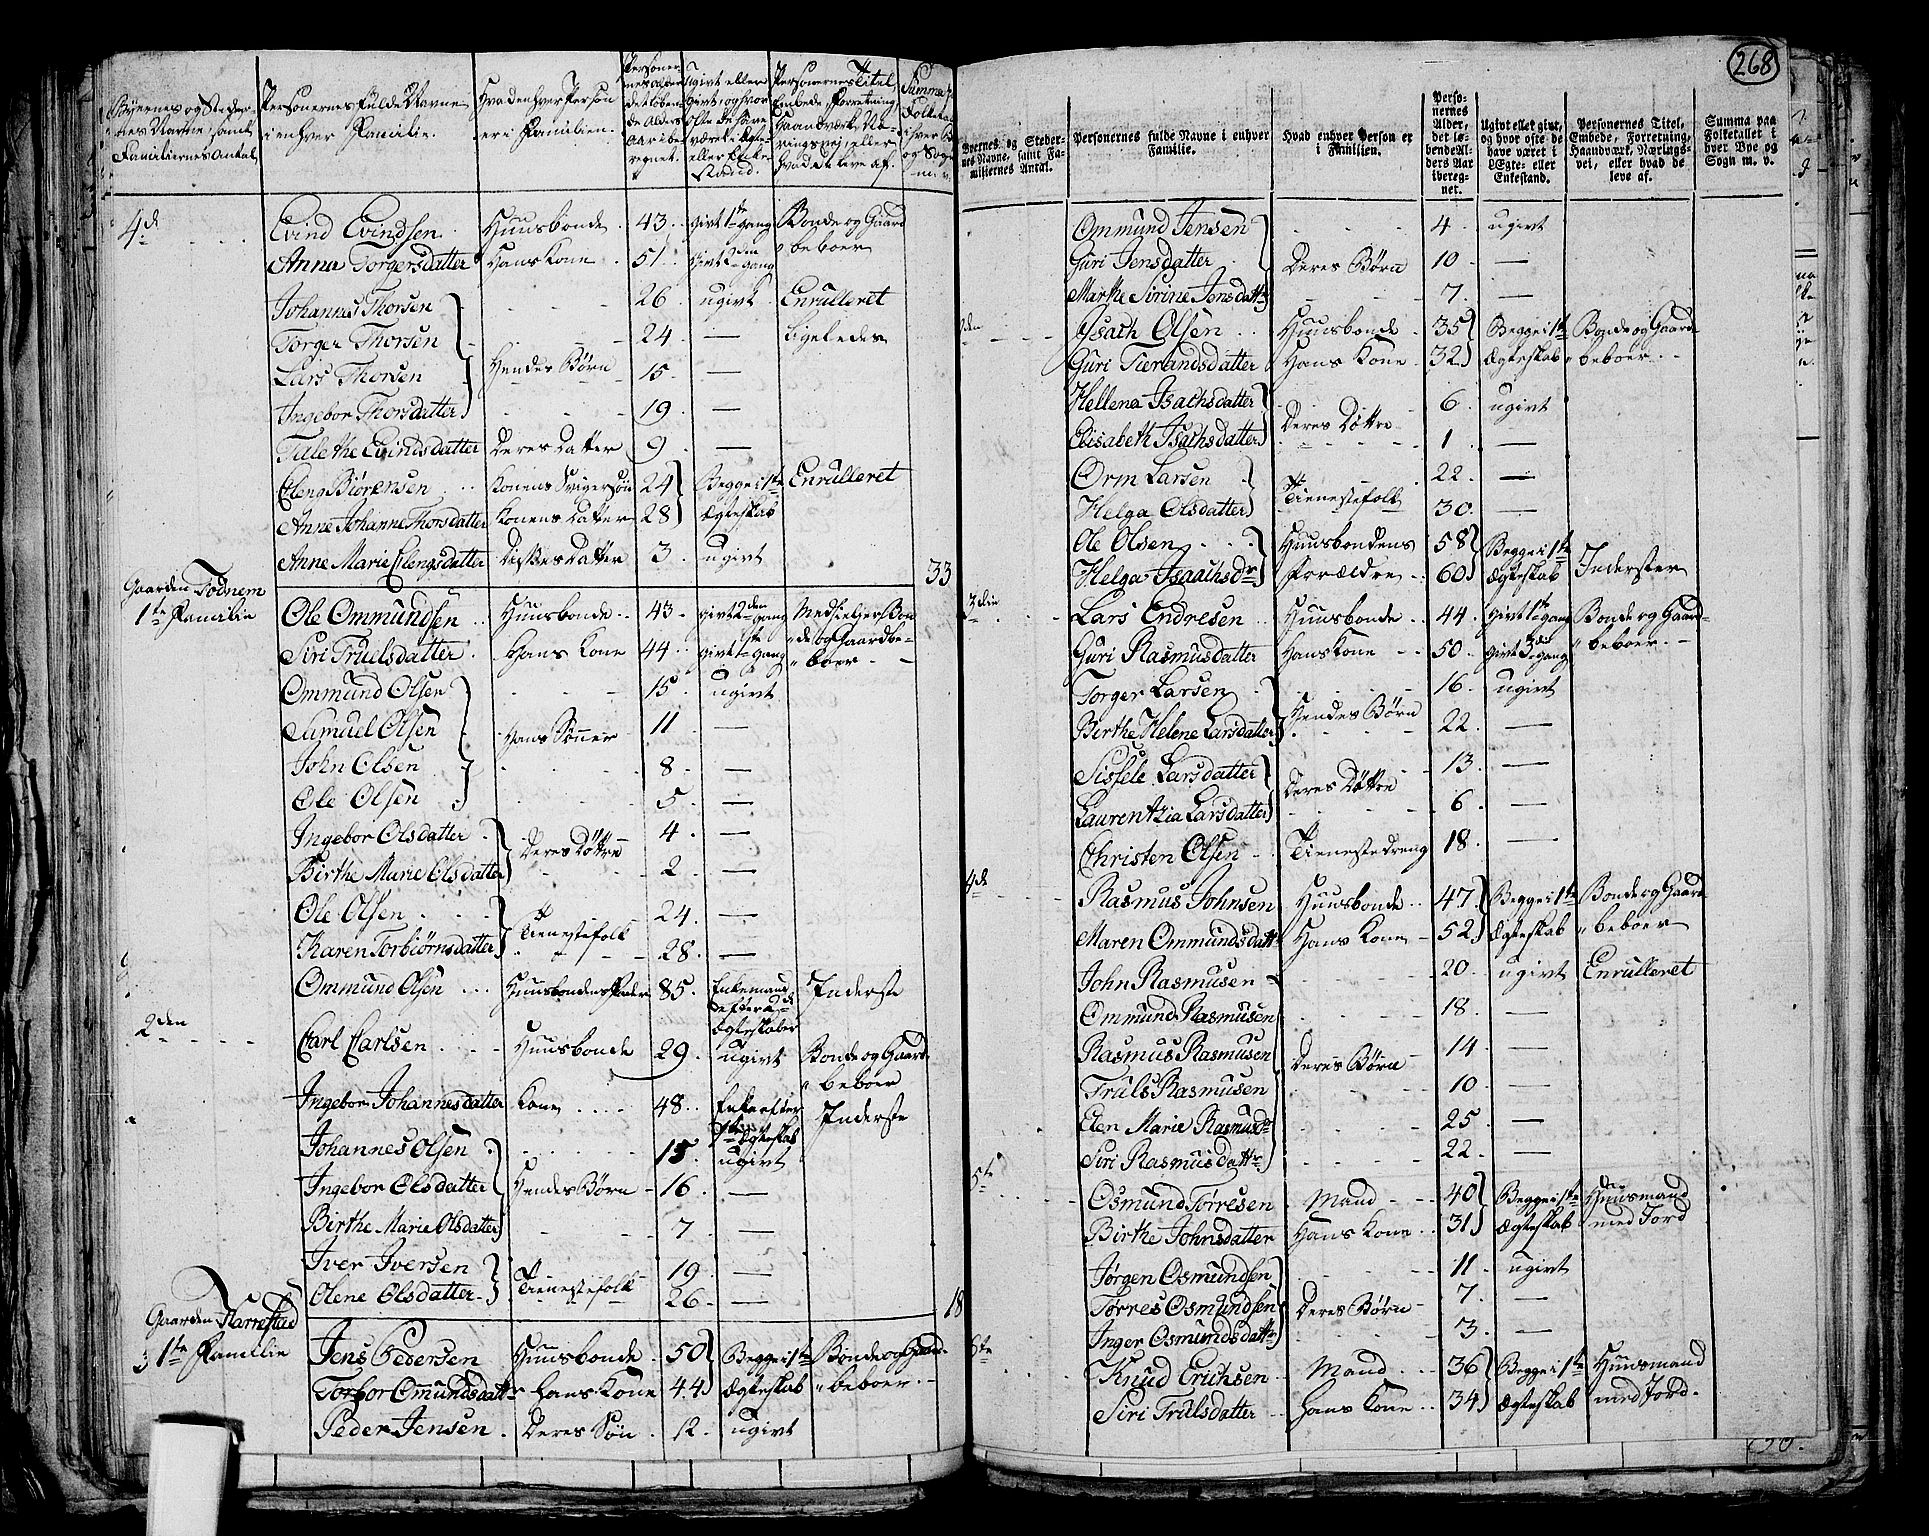 268
Byernes og Steder-
nes Navne, samt
Familiernes Antal,
Personernes fulde Navne
i enhver Familie.
Hvad enhver Person
er i Familien.
Personer-
nes Alder
det løben-
de Alders
Aar ibe-
regnet.
Ugivt eller
givt, og hvor
ofte de have
været i Ægte-
eller Enke-
stand.
Personernes Titel
Embede, Forretning,
Haandværk, Næ-
ringsvej, eller
hvad de leve af.
4de Evind Evindsen Huusbonde 43 givt 1ste gang Bonde og Gaard
Anna Torgersdatter Hans Kone 51 givt 2den gang beboer
Johannes Thorsen 26 ugivt Enrulleret
Torger Thorsen 24 — ligeledes
Lars Thorsen Hendes Børn 15 —
Ingebor Thorsdatter 19 —
Tallethe Evindsdatter Deres Datter 9 —
Eleng Biørensen Konens Svigersøn 24 Begge i 1ste Enrulleret
Anne Johanne Thorsdatter Konens Datter 28 Ægteskab
Anne Marie Elengsdatter Disses Datter 3 ugivt 33
Gaarden Todnem
1te Familie Ole Ommundsen Huusbonde 43 givt 2den gang Medhielper Bon
Siri Truelsdatter Hans Kone 44 givt 1ste gang de og Gaardbe-
beboer
Ommund Olsen 15 ugivt
Samuel Olsen Hans Sønner 11 —
John Olsen 8 —
Ole Olsen 5 —
Ingebor Olsdatter Deres Døttre 4 —
Birthe Marie Olsdatter 2 —
Ole Olsen Tienestefolk 24 —
Karen Torbiørnsdatter 28 —
Ommund Olsen Huusbondens Fader 85 Enkemand Inderste
efter 2de
Ægteskaber
2den Carl Carlsen Huusbonde 29 ugivt Bonde og Gaard-
beboer
Ingebor Johannesdatter Kone 48 Enke efter Inderste
1ste Ægteskab
Johannes Olsen 15 ugivt
Ingebor Olsdatter Hendes Børn 16 —
Birthe Marie Olsdatter 7 —
Iver Iversen Tienestefolk 19 —
Olene Olsdatter 26 — 18
Gaarden Harrestad
1te Familie Jens Pedersen Huusbonde 50 Begge i 1ste Bonde og Gaard-
Torbor Ommundsdattr Hans Kone 44 Ægteskab beboer
Peder Jensen Deres Søn 12 ugivt
Byernes og Steder-
nes Navne, samt Fa-
miliernes Antal.
Personernes fulde Navne i enhver
Familie.
Hvad enhver Person er
i Familien.
Perso-
nernes
Alder,
det lø-
bende Al-
ders Aar
ibereg-
net.
Ugivt eller givt,
og hvor ofte de
have været i
Ægte- eller
Enkestand.
Personernes Titel,
Embede, Forretning,
Haandværk, Nærings-
vei, eller hvad de
leve af.
Summa paa
Folketallet i
hver Bye og
Sogn m. v.
Ommund Jensen 4 ugivt
Guri Jensdatter Deres Børn 10 —
Marthe Sirine Jensdattr 7 —
2den Isach Olsen Huusbonde 35 Begge i 1ste Bonde og Gaard
Guri Tierlandsdatter Hans Kone 32 Ægteskab beboer
Hellena Isachsdatter Deres Døttre 6 ugivt
Elisabeth Isachsdatter 1 —
Orm Larsen Tienestefolk 22 —
Helga Olsdatter 30 —
Ole Olsen Huusbondens 58 Begge i 1ste Inderster
Helga Isaachsdr Forældre 60 Ægteskab
3die Lars Endresen Huusbonde 44 givt 1ste gang Bonde og Gaard-
Guri Rasmusdatter Hans Kone 50 givt 3die gang beboer
Torger Larsen Hendes Børn 16 ugivt
Birthe Helene Larsdatter 22 —
Sissele Larsdatter Deres Døttre 13 —
Laurentzia Larsdatter 6 —
Christen Olsen Tienestedreng 18 —
4de Rasmus Johnsen Huusbonde 47 Begge i 1ste Bonde og Gaard
Maren Ommundsdattr Hans Kone 52 Ægteskab beboer
John Rasmusen 20 ugivt Enrulleret
Ommund Rasmusen 18 —
Rasmus Rasmusen Deres Børn 14 —
Truls Rasmusen 10 —
Elen Marie Rasmusdr 25 —
Siri Rasmusdattr 22 —
5te Osmund Tørresen Mand 40 Begge i 1ste Huusmand
Birthe Johnsdatter Hans Kone 31 Ægteskab med Jord
Jørgen Osmundsen 11 ugivt
Tørres Osmundsen Deres Børn 7 —
Inger Osmundsdattr 3 —
6te Knud Erichsen Mand 36 Begge i 1ste Huusmand
Siri Trulsdatter Hans Kone 34 Ægteskab med Jord